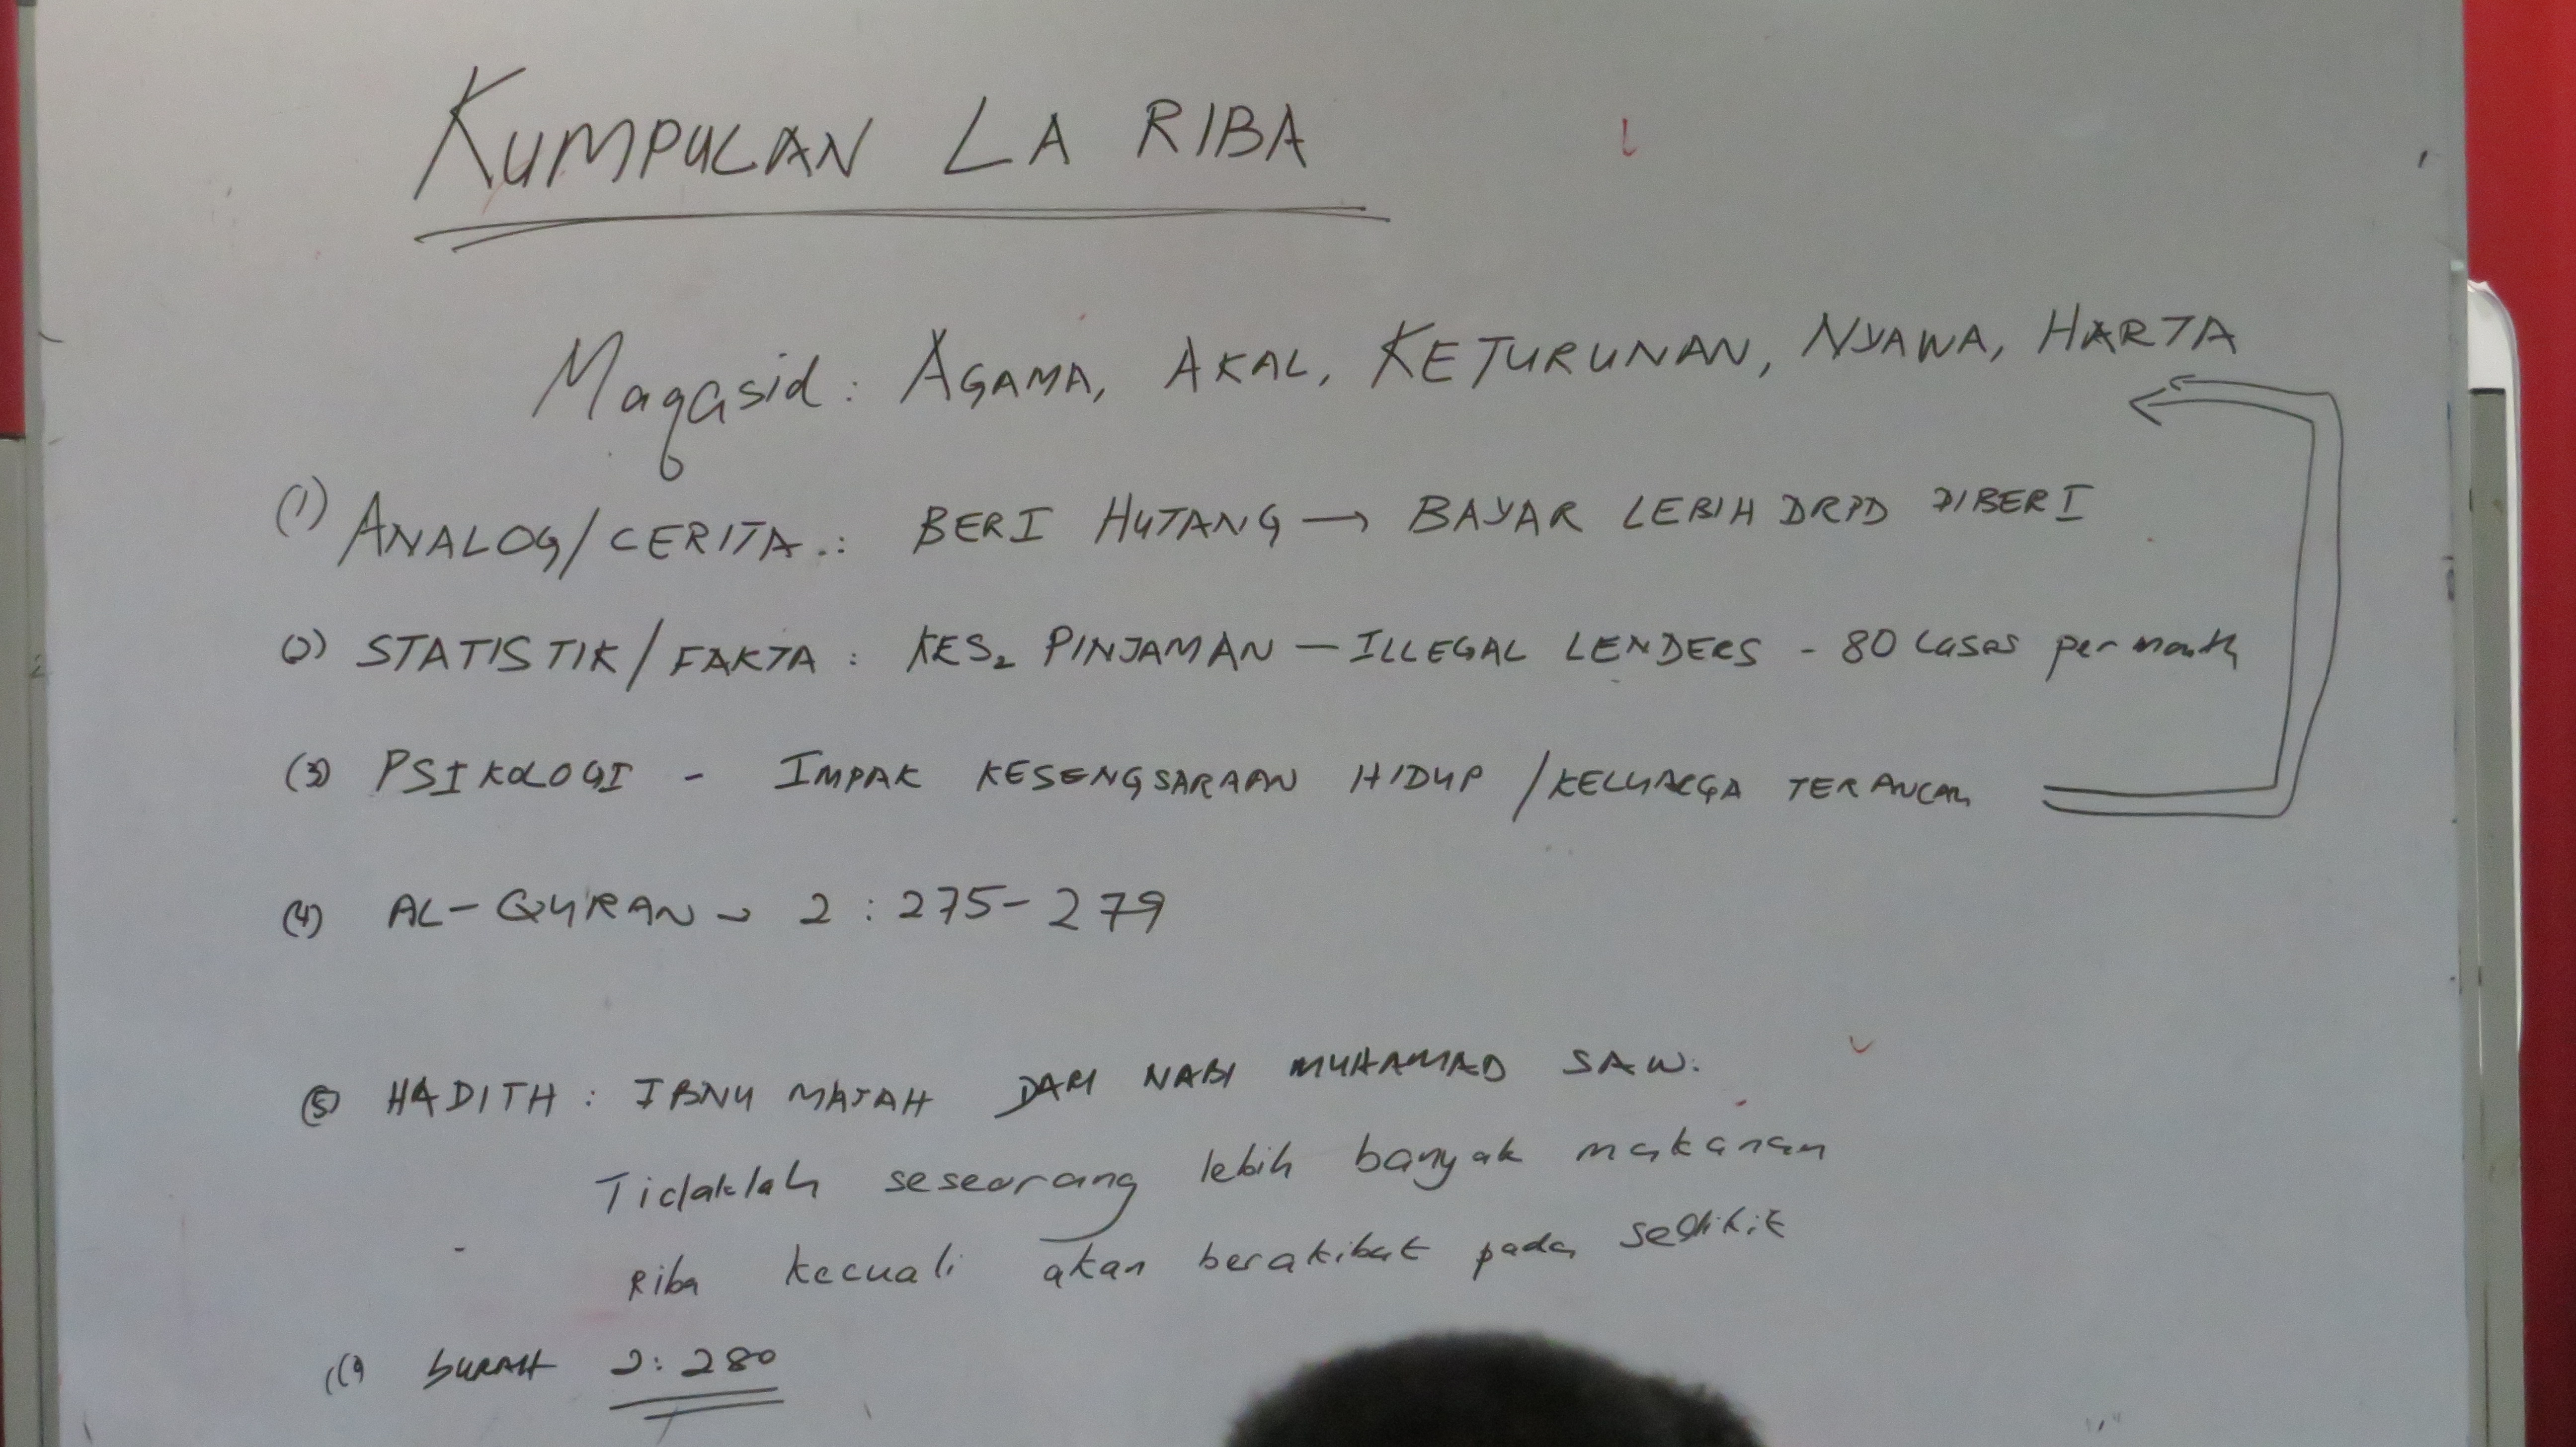 KUMPULAN LA RIBA
Maqasid: AGAMA, AKAL, KETURUNAN, NYAWA, HARTA
(1) ANALOG/CERITA.: BERI HUTANG → BAYAR LEBIH DRPD DIBERI
(2) STATISTIK/FAKTA: KES2 PINJAMAN — ILLEGAL LENDERS - 80 cases per month
(3) PSIKOLOGI - IMPAK KESENGSARAAN HIDUP /KELUARGA TERANCAM
(4) AL-QURAN - 2:275-279
(5) HADITH: IBNU MAJAH DARI NABI MUHAMAD SAW.
Tidaklah seseorang lebih banyak makanan
Riba kecuali akan berakibat pada sedikit
SURAH 2:280